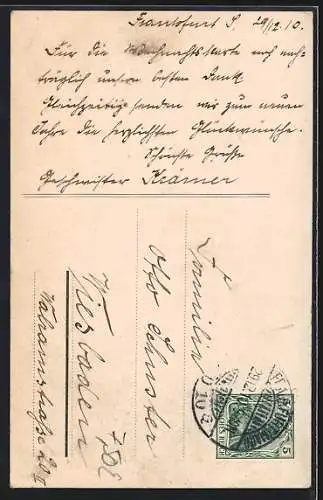 Frankfurt S. 29/12.10.
Für die Weihnachtskarte noch nach-
träglich unsern besten Dank.
Gleichzeitig senden wir zum neuen
Jahre die herzlichsten Glückwünsche.
Schönste Grüße
Geschwister Krämer
Familie
Otto Schuster
Wiesbaden
5